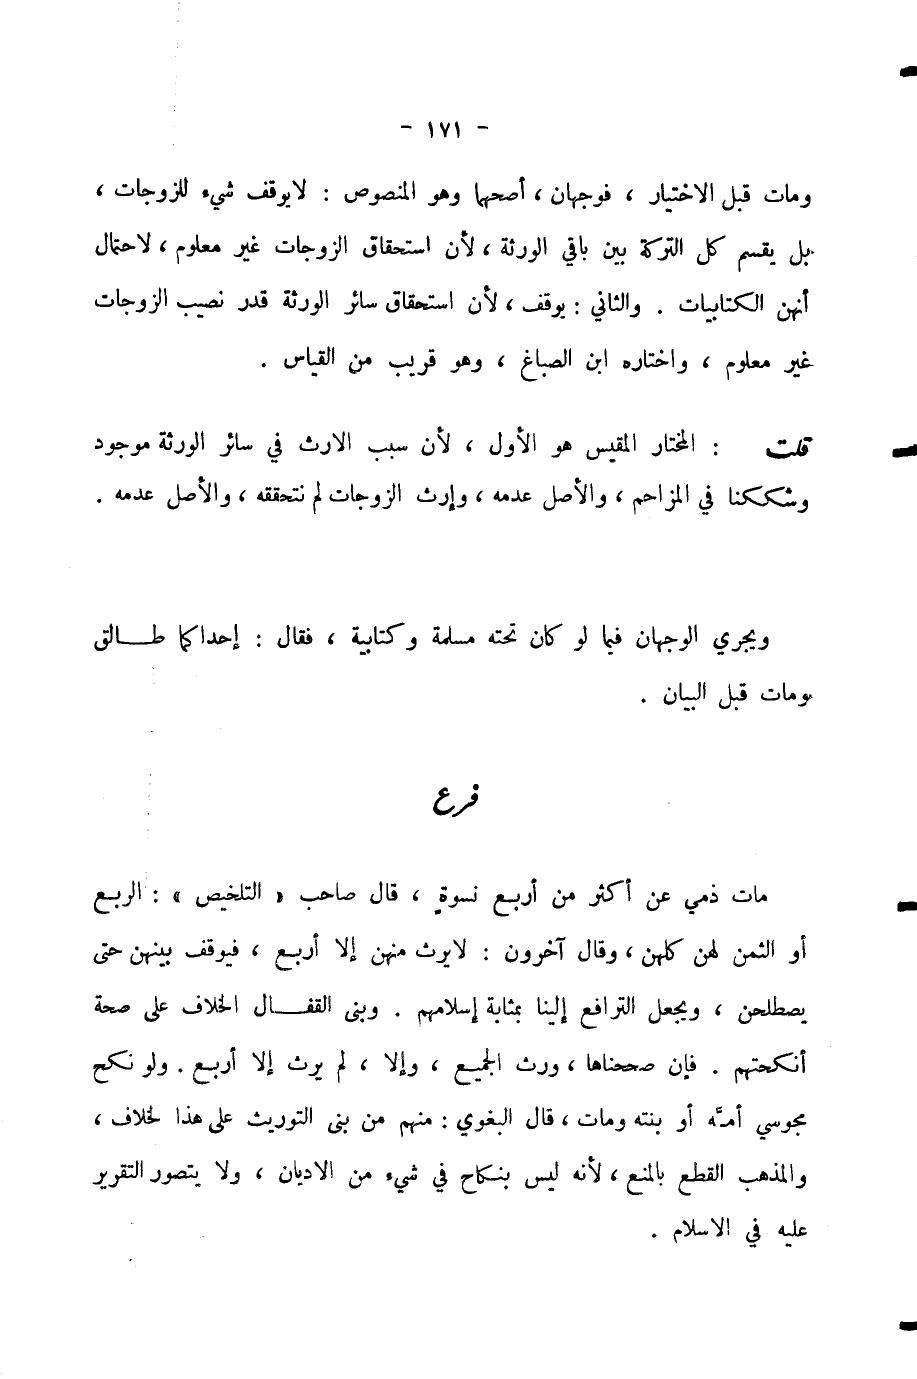 - ١٧١ -
ومات قبل الاختيار ، فوجهان ، أصحها وهو المنصوص : لايوقف شيء للزوجات ،
بل يقسم كل التركة بين باقي الورثة ، لأن استحقاق الزوجات غير معلوم ، لاحتمال
أنهن الكتابيات . والثاني : يوقف ، لأن استحقاق سائر الورثة قدر نصيب الزوجات
غير معلوم ، واختاره ابن الصباغ ، وهو قريب من القياس .
قلت : المختار المقيس هو الأول ، لأن سبب الارث في سائر الورثة موجود
وشككنا في المزاحم ، والأصل عدمه ، وإرث الزوجات لم نتحققه ، والأصل عدمه .
ويجري الوجهان فيما لو كان تحته مسلمة وكتابية ، فقال : إحداكما طـــالق
ومات قبل البيان .
فرع
مات ذمي عن أكثر من أربع نسوةٍ ، قال صاحب « التلخيص » : الربع
أو الثمن لهن كلهن ، وقال آخرون : لايرث منهن إلا أربع ، فيوقف بينهن حتى
يصطلحن ، ويجعل الترافع إلينا بمثابة إسلامهم . وبنى القفـــال الخلاف على صحة
أنكحتهم . فإن صححناها ، ورث الجميع ، وإلا ، لم يرث إلا أربع . ولو نكح
مجوسي أمَّه أو بنته ومات ، قال البغوي : منهم من بنى التوريث على هذا لخلاف ،
والمذهب القطع بالمنع ، لأنه ليس بنكاح في شيء من الاديان ، ولا يتصور التقرير
عليه في الاسلام .